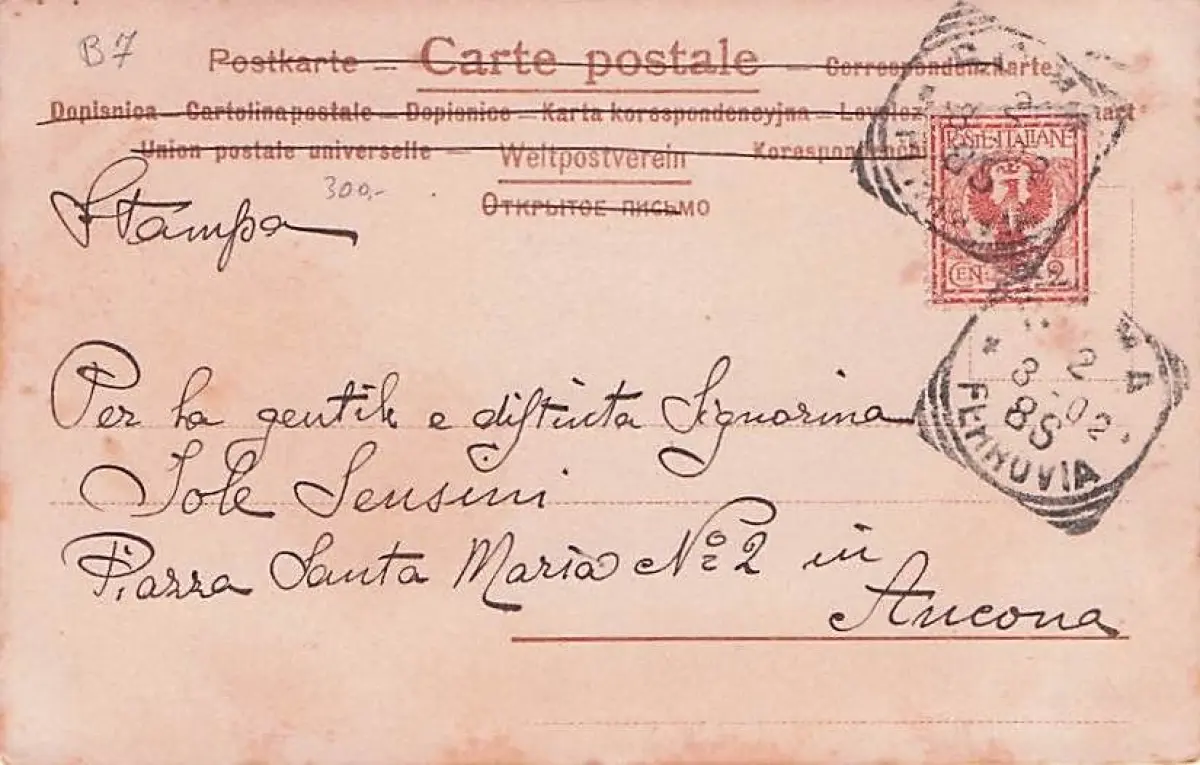 B7
Postkarte — Carte postale — Correspondenzkarte
Dopisnica — Cartolina postale — Dopisnice — Karta korespondencyjna — Levelez
Union postale universelle — Weltpostverein
ОТКРЫТОЕ ПИСЬМО
Stampa
300,-
POSTE·ITALIANE
CENT. 2
Per la gentile e distinta Signorina
Iole Sensini
Piazza Santa Maria No 2 in
Ancona
3 2
8S 02
FERROVIA